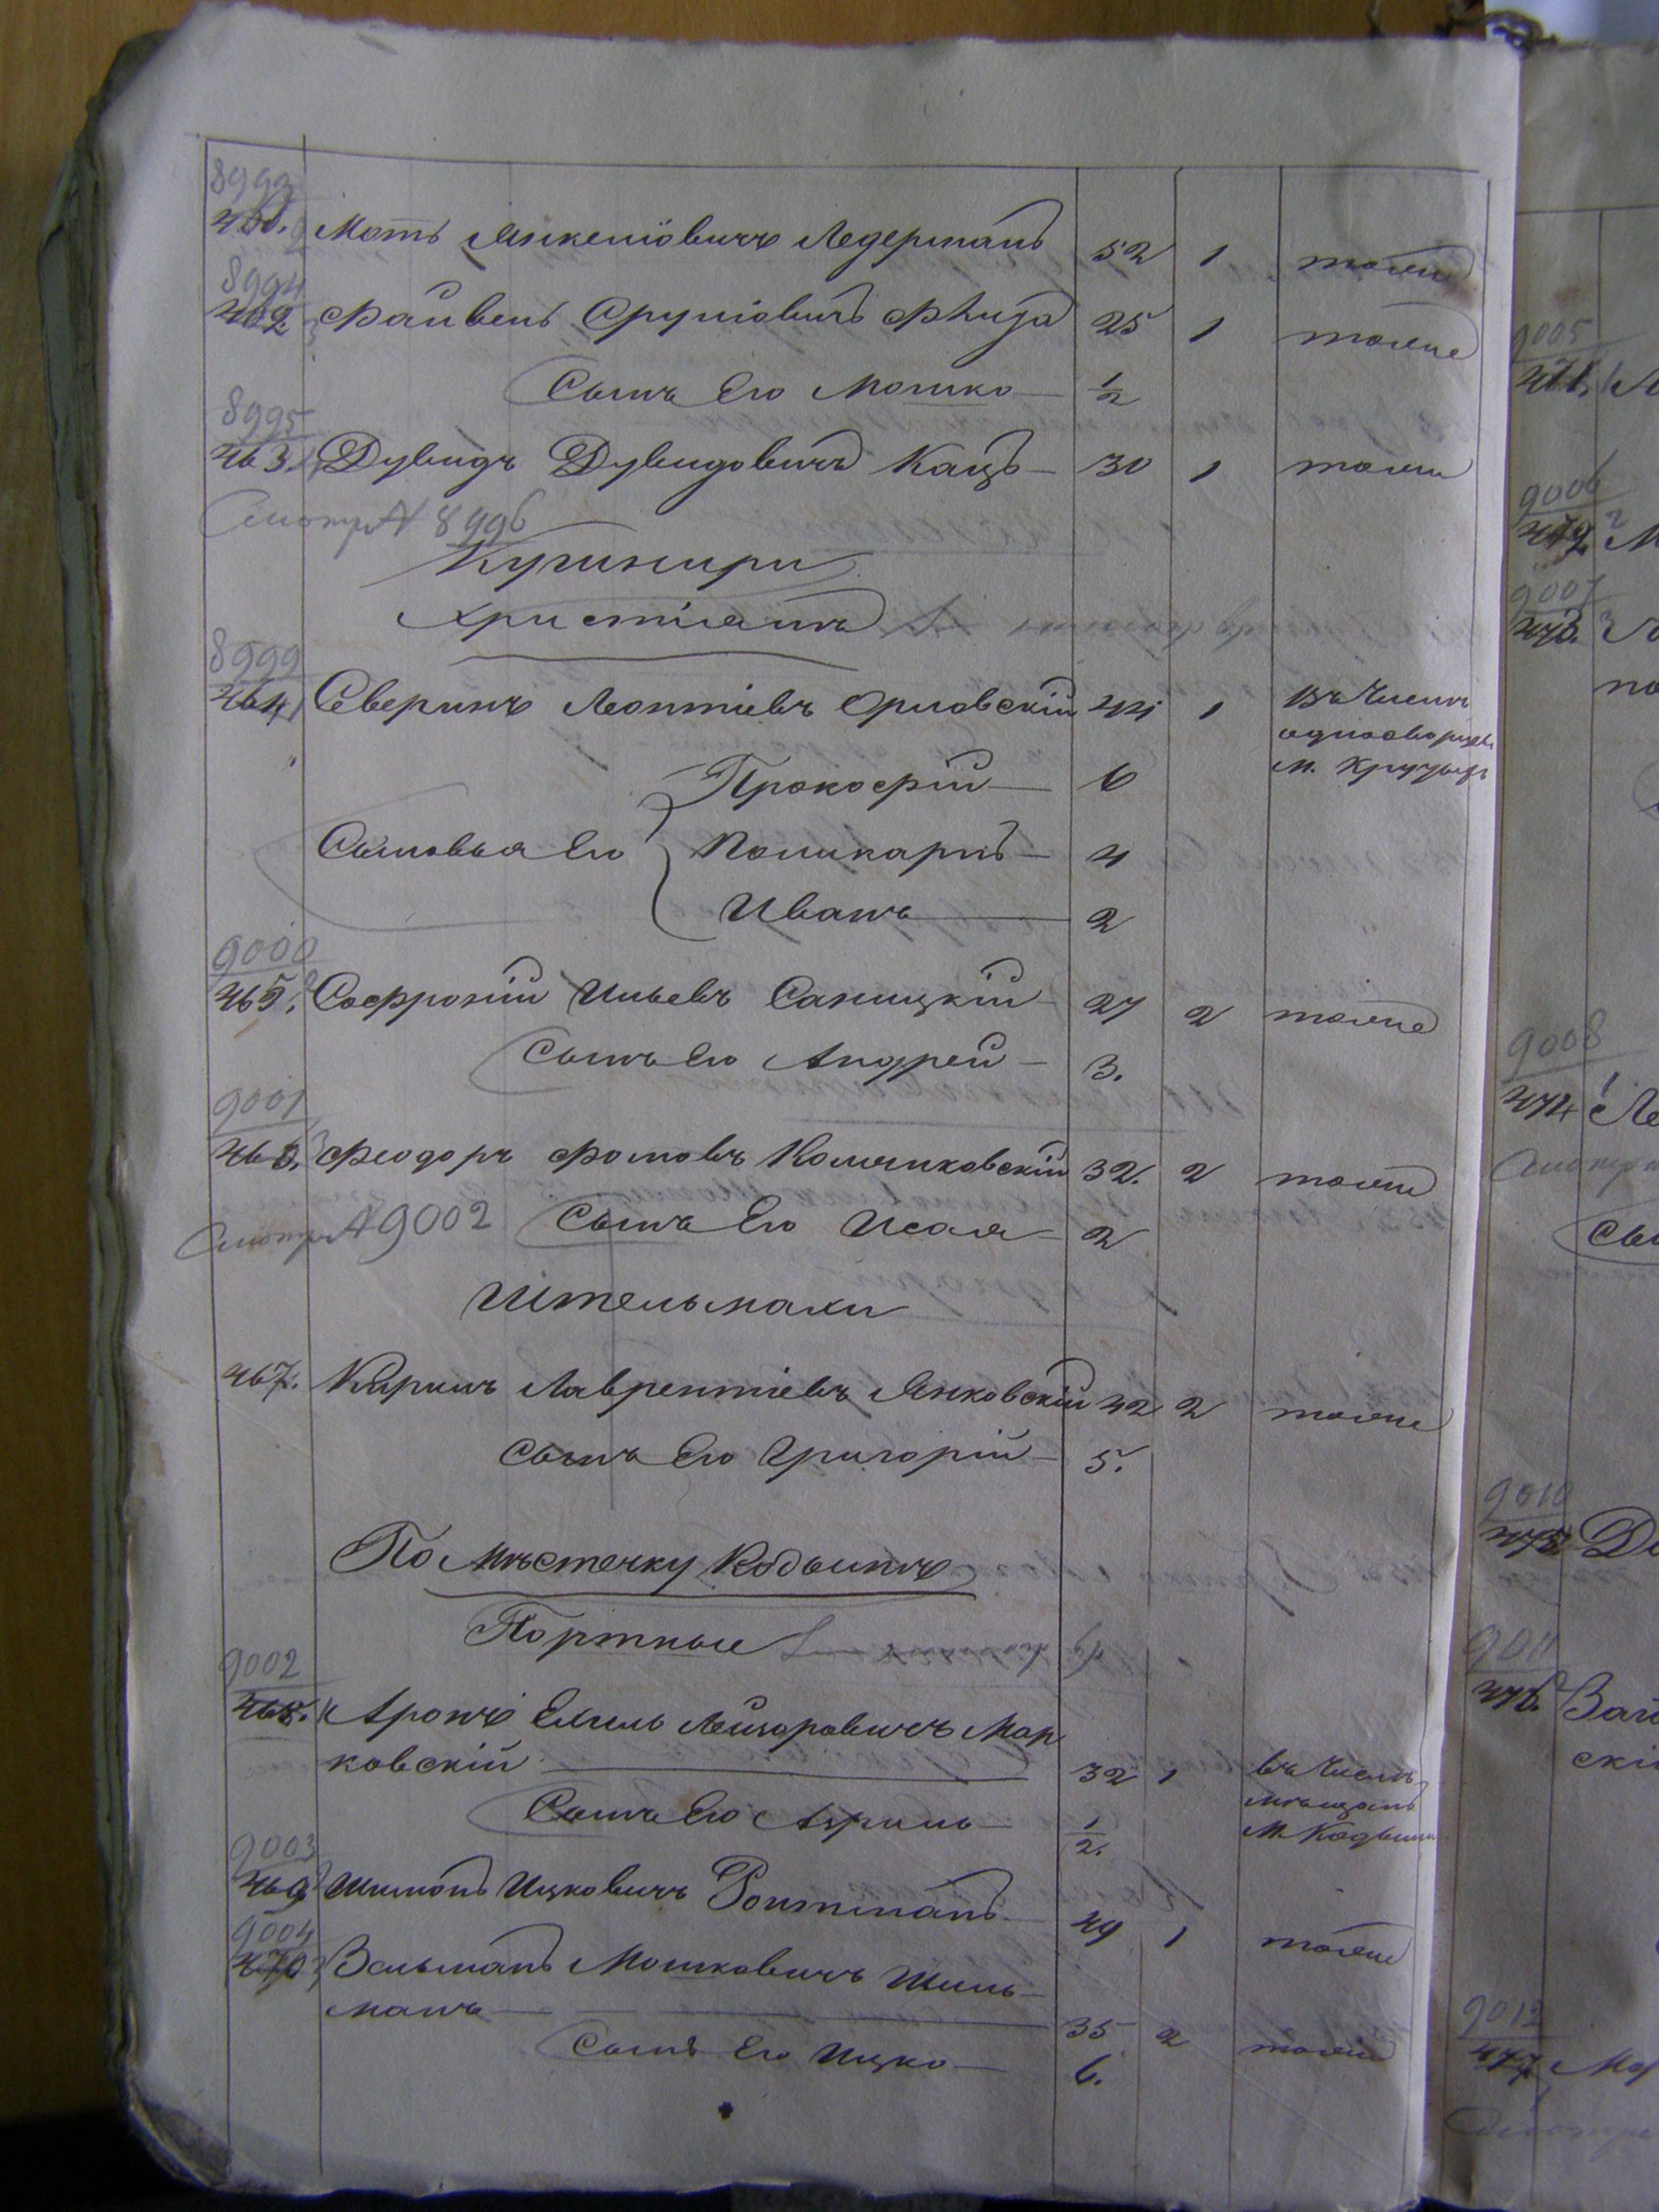 8993
461. Моть Янкеліовичъ Ледерманъ 52 1 тоже
8994
462. Файвель Сруліовичъ 25 1 тоже
Сынъ Его Мошко 1/2
8995
463. Дувидъ Дувидовичъ Кацъ 30 1 тоже
Смотри № 8996
Кушниры
Христіанъ
8999
464 Северинъ Леонтіевъ Орловскій 44 1 Въ Числѣ
однодворцевъ
м.
Прокофій 6
Сыновья Его Поликарпъ 4
Иванъ 2
9000
465. Софроній Ильевъ Саницкій 27 2 тоже
Сынъ Его Андрей 3.
9001
466. Феодоръ Фомовъ 32. 2 тоже
Смотри № 9002 Сынъ Его Исая 2
Штельмахи
467. Кирилъ Лаврентіевъ Янковскій 42 2 тоже
Сынъ Его Григорій 5.
По Мѣстечку Кодымѣ
Портные
9002
468. Аронъ Ехиль Лейзоровичъ Мар
ковскій 32 1 въ Числѣ
мѣщанъ
Сынъ Его 1/2. М. Кодымы
9003
469 Шимонъ Ицковичъ Ройтманъ 49 1 тоже
9004
470 Зельманъ Мошковичъ Шиль
манъ 35 2 тоже
Сынъ Его Ицко 6.
9005
471.
9006
472.
9007
473.
9008
474
9010
475
9011
476.
9012
477